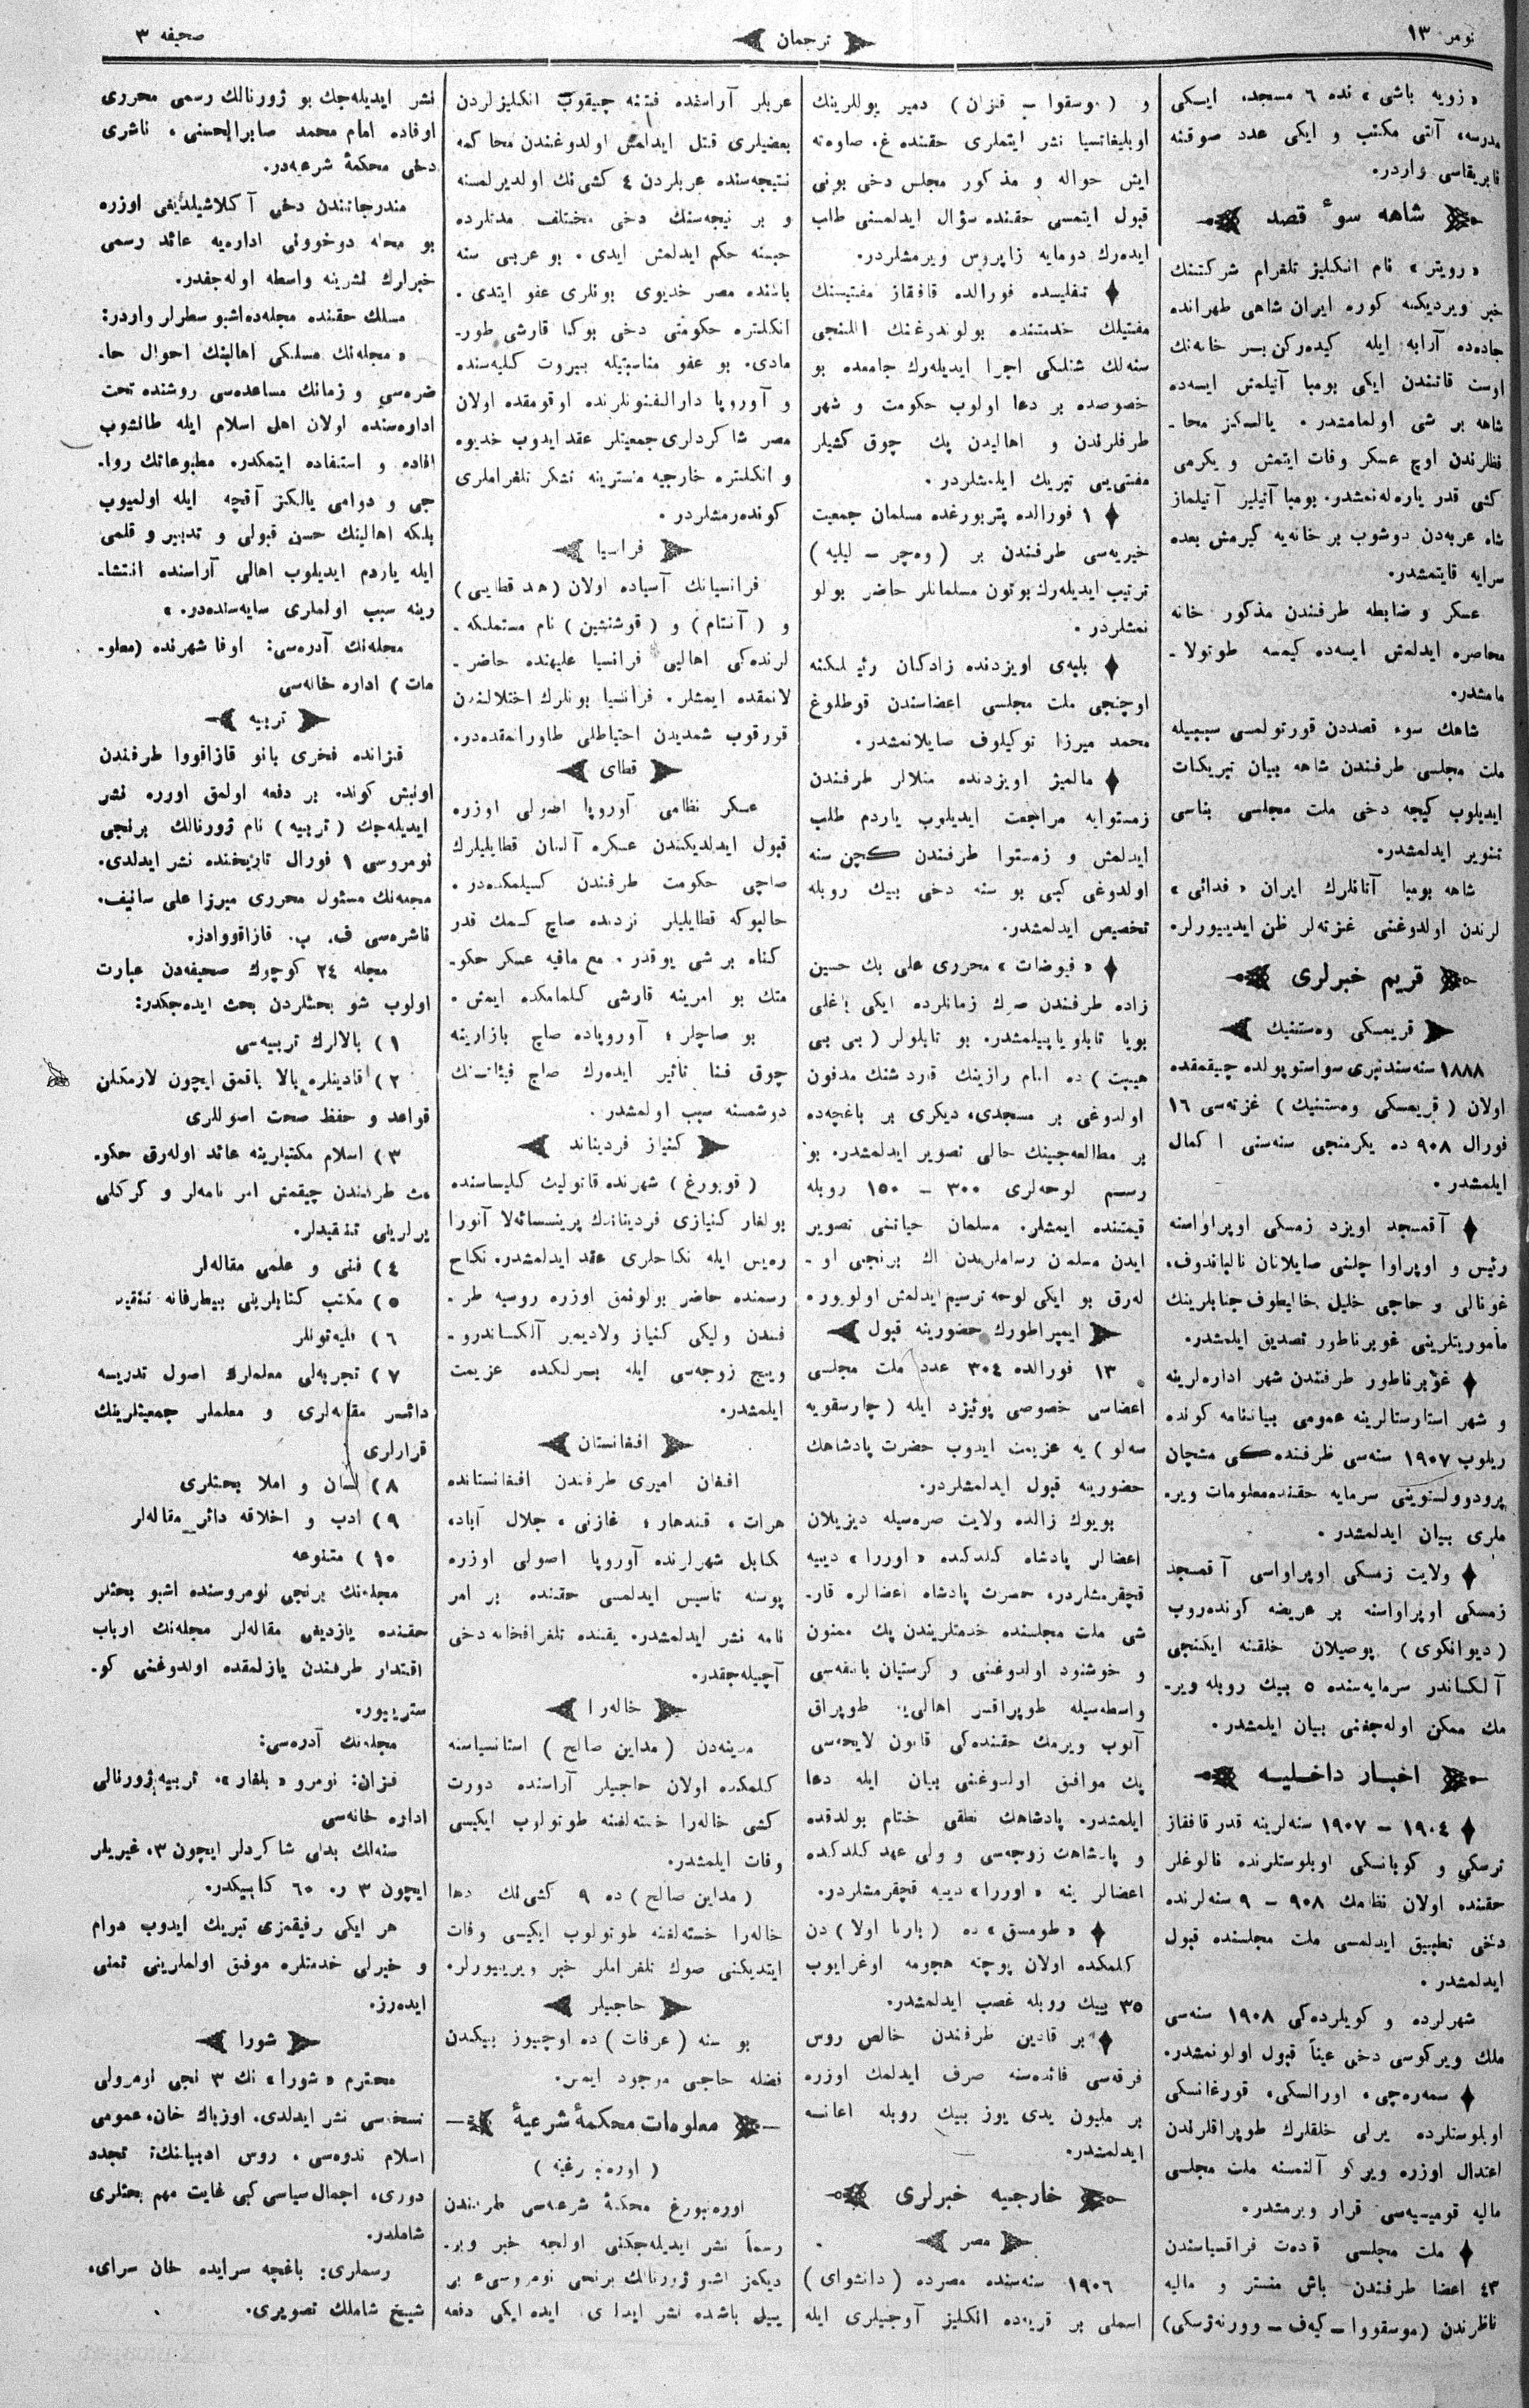 نومر ١٣
ترجمان
صحيفه ٣
«زويه باشى» نده ٦ مسجد، ايسكى
مدرسه، آلتى مكتب و ايكى عدد صوقنه
فابريقاسى واردر.
شاهه سوءٔ قصد
«رويتر» نام انكليز تلغرام شركتنك
خبر ويرديكنه كوره ايران شاهى طهرانده
جاده‌ده آرابه ايله كيده‌ركن بر خانه‌نك
اوست قاتندن ايكى بومبا آتيلمش ايسه‌ده
شاهه بر شى اولمامشدر. يالـكز محا-
فظلرندن اوچ عسكر وفات ايتمش و يكرمى
كشى قدر ياره‌له‌نمشدر. بومبا آتيلير آتيلماز
شاه عربه‌دن دوشوب بر خانه‌يه كيرمش بعده
سرايه قايتمشدر.
عسكر و ضابطه طرفندن مذكور خانه
محاصره ايدلمش ايسه‌ده كيمسه طوتولا-
مامشدر.
شاهك سوء قصددن قورتولمسى سببيله
ملت مجلسى طرفندن شاهه بيان تبريكات
ايديلوب كيجه دخى ملت مجلسى بناسى
تنوير ايدلمشدر.
شاهه بومبا آتانلرك ايران «فدائى»
لرندن اولدوغنى غزته‌لر ظن ايدييورلر.
قريم خبرلرى
قريمسكى وه‌ستنيك
١٨٨٨ سنه‌سندنبرى سواستوپولده چيقمقده
اولان (قريمسكى وه‌ستنيك) غزته‌سى ١٦
فورال ٩٠٨ ده يكرمنجى سنه‌سنى اكمال
ايلمشدر.
آقمسجد اويزد زمسكى اوپراواسنه
رئيس و اوپراوا چلنى صايلانان نالباندوف،
غونالى و حاجى خليل خاليطوف جنابلرينك
مأموريتلرينى غوبرناطور تصديق ايلمشدر.
غوبرناطور طرفندن شهر اداره‌لرينه
و شهر استارستالرينه عمومى بياننامه كونده
ريلوب ١٩٠٧ سنه‌سى ظرفنده‌كى مشچان
پرودوولستوينى سرمايه حقنده معلومات وير-
ملرى بيان ايدلمشدر.
ولايت زمسكى اوپراواسى آقمسجد
زمسكى اوپراواسنه بر عريضه كونده‌روب
(ديوانكوى) پوصيلان خلقنه ايكنجى
آلكساندر سرمايه‌سنده ٥ بيك روبله وير-
مك ممكن اوله‌جغنى بيان ايلمشدر.
اخبار داخليه
١٩٠٤ – ١٩٠٧ سنه‌لرينه قدر قافقاز
ترسكي و كوبانسكى اوبلوستلرنده نالوغلر
حقنده اولان نظامك ٩٠٨ – ٩ سنه‌لرنده
دخى تطبيق ايدلمسى ملت مجلسنده قبول
ايدلمشدر.
شهرلرده و كويلرده‌كى ١٩٠٨ سنه‌سى
ملك ويركوسى دخى عيناً قبول اولونمشدر.
سمه‌ره‌چى، اورالسكى، قورغانسكى
اوبلوستلرده يرلى خلقلرك طوپراقلرندن
اعتدال اوزره ويركو آلنمسنه ملت مجلسى
ماليه قوميسيه‌سى قرار ويرمشدر.
ملت مجلسى قده‌ت فراقسياسندن
٤٣ اعضا طرفندن باش منستر و ماليه
ناظرندن (موسقووا – كيه‌ف – وورنه‌ژسكى)
و (موسقوا – قزان) دمير يوللرينك
اوبليغاتسيا نشر ايتملرى حقنده غ. صاوه‌ته
ايش حواله و مذكور مجلس دخى بونى
قبول ايتمسى حقنده سؤال ايدلمسنى طلب
ايده‌رك دومايه زاپروس ويرمشلردر.
تفليسده فورالده قافقاز مفتيسنك
مفتيلك خدمتنده بولوندوغنك اللنجى
سنه‌لك شنلكى اجرا ايديله‌رك جامعده بو
خصوصده بر دعا اولوب حكومت و شهر
طرفلرندن و اهاليدن پك چوق كشيلر
مفتى‌يى تبريك ايلمشلردر.
١ فورالده پتربورغده مسلمان جمعيت
خيريه‌سى طرفندن بر (وه‌چر – ليليه)
ترتيب ايديله‌رك بوتون مسلمانلر حاضر بولو
نمشلردر.
بلبه‌ى اويزدنده زادكان رئيسلكنه
اوچنجى ملت مجلسى اعضاسندن قوطلوغ
محمد ميرزا توكيلوف صايلانمشدر.
مالميژ اويزدنده منلالر طرفندن
زمستوايه مراجعت ايديلوب ياردم طلب
ايدلمش و زمستوا طرفندن كچن سنه
اولدوغى كبى بو سنه دخى بيك روبله
تخصيص ايدلمشدر.
«فيوضات» محررى على بك حسين
زاده طرفندن صوك زمانلرده ايكى ياغلى
بويا تابلو ياپيلمشدر. بو تابلولر (بى بى
هيبت) ده امام رازينك قردشنك مدفون
اولدوغى بر مسجدى، ديكرى بر باغچه‌ده
بر مطالعه‌جينك حالى تصوير ايدلمشدر. بو
رسم لوحه‌لرى ٣٠٠ – ١٥٠ روبله
قيمتنده ايمشلر. مسلمان حياتنى تصوير
ايدن مسلمان رساملريدن اك برنجى او-
له‌رق بو ايكى لوحه ترسيم ايدلمش اولويوره
ايمپراطورك حضورينه قبول
١٣ فورالده ٣٠٤ عدد ملت مجلسى
اعضاسى خصوصى پوئيزد ايله (چارسقويه
سه‌لو) يه عزيمت ايدوب حضرت پادشاهك
حضورينه قبول ايدلمشلردر.
بويوك زالده ولايت صره‌سيله ديزيلان
اعضالر پادشاه كلدكده «اوررا» ديپه
قچقرمشلردر، حضرت پادشاه اعضالره قار-
شى ملت مجلسنده خدمتلريندن پك ممنون
و خوشنود اولدوغنى و كرستيان بانقه‌سى
واسطه‌سيله طوپراقسز اهالى‌يه طوپراق
آلوب ويرمك حقنده‌كى قانون لايحه‌سى
پك موافق اولدوغنى بيان ايله دعا
ايلمشدر. پادشاهك نطقى ختام بولدقده
و پادشاهك زوجه‌سى و ولى عهد كلدكده
اعضالر ينه «اوررا» ديپه قچقرمشلردر.
«طومسق» ده (بارنا اولا) دن
كلمكده اولان پوچته هجومه اوغرايوب
٣٥ بيك روبله غصب ايدلمشدر.
بر قادين طرفندن خالص روس
فرقه‌سى فائده‌سنه صرف ايدلمك اوزره
بر مليون يدى يوز بيك روبله اعانه
ايدلمشدر.
خارجيه خبرلرى
مصر
١٩٠٦ سنه‌سنده مصرده (دانشواى)
اسملى بر قريه‌ده انكليز آوجيلرى ايله
عربلر آراسنده فتنه چيقوب انكليزلردن
بعضيلرى قتل ايدلمش اولدوغندن محاكمه
نتيجه‌سنده عربلردن ٤ كشى‌نك اولديرلمسنه
و بر نيجه‌سنك دخى مختلف مدتلرده
حبسنه حكم ايدلمش ايدى. بو عربى سنه
باشنده مصر خديوى بونلرى عفو ايتدى.
انكلتره حكومتى دخى بوكا قارشى طور-
مادى. بو عفو مناسبتيله بيروت كليه‌سنده
و آوروپا دارالفنونلرنده اوقومقده اولان
مصر شاكردلرى جمعيتلر عقد ايدوب خديوه
و انكلتره خارجيه منسترينه تشكر تلغراملرى
كوندەرمشلردر.
فراسيا
فرانسيانك آسياده اولان (هند قطايى)
و (آننام) و (قوشنشين) نام مستملكه-
لرنده‌كى اهالى فرانسيا عليهنده حاضر-
لانمقده ايمشلر. فرانسيا بونلرك اختلالندن
قورقوب شمديدن احتياطلى طاورانمقده‌در.
قطاى
عسكر نظامى آوروپا اصولى اوزره
قبول ايدلديكندن عسكره آلنان قطايليلرك
صاچى حكومت طرفندن كسيلمكده‌در.
حالبوكه قطايليلر نزدنده صاچ كسمك قدر
كناه بر شى يوقدر. مع مافيه عسكر حكو-
متك بو امرينه قارشى كلمامكده ايمش.
بو صاچلر؛ آوروپاده صاچ بازارينه
چوق فنا تأثير ايده‌رك صاچ فيئاتنك
دوشمسنه سبب اولمشدر.
كنياز فرديناند
(قوبورغ) شهرنده قاتوليك كليساسنده
بولغار كنيازى فرديناندك پرينسسائه‌لا آنورا
ره‌يس ايله نكاحلرى عقد ايدلمشدر. نكاح
رسمنده حاضر بولونمق اوزره روسيه طر-
فندن وليكى كنياز ولاديمير آلكساندرو-
ويچ زوجه‌سى ايله برلكده عزيمت
ايلمشدر.
افغانستان
افغان اميرى طرفندن افغانستانده
هرات، قندهار، غازنى، جلال آباد،
كابل شهرلرنده آوروپا اصولى اوزره
پوسته تأسيس ايدلمسى حقنده بر امر
نامه نشر ايدلمشدر. يقينده تلغرافخانه دخى
آچيله‌جقدر.
خاله‌را
مدينه‌دن (مداين صالح) استانسياسنه
كلمكده اولان حاجيلر آراسنده دورت
كشى خاله‌را خسته‌لغنه طوتولوب ايكيسى
وفات ايلمشدر.
(مداين صالح) ده ٩ كشى‌نك دها
خاله‌را خسته‌لغنه طوتولوب ايكيسى وفات
ايتديكنى صوك تلغراملر خبر ويرييورلر.
حاجيلر
بو سنه (عرفات) ده اوچيوز بيكدن
فضله حاجى موجود ايمش.
معلومات محكمهٔ شرعيهٔ
(اوره‌نبورغيه)
اوره‌نبورغ محكمهٔ شرعيه‌سى طرفندن
رسماً نشر ايديله‌جكنى اولجه خبر وير-
ديكمز اشبو ژورنالك برنجى نومروسىء بر
ييل باشده نشر ايدلدى. ايده ايكى دفعه
نشر ايديله‌جك بو ژورنالك رسمى محررى
اوفاده امام محمد صابر الحسنى، ناشرى
دخى محكمهٔ شرعيه‌در.
مندرجاتندن دخى آكلاشيلديغى اوزره
بو مجله دوخوونى اداره‌يه عائد رسمى
خبرلرك نشرينه واسطه اوله‌جقدر.
مسلك حقنده مجله‌ده اشبو سطرلر واردر:
«مجله‌نك مسلكى اهالينك احوال حا-
ضره‌سي و زمانك مساعده‌سى روشنده تحت
اداره‌سنده اولان اهل اسلام ايله طانشوب
افاده و استفاده ايتمكدر. مطبوعاتك روا-
جى و دوامى يالكز آقچه ايله اولميوب
بلكه اهالينك حسن قبولى و تدبير و قلمى
ايله ياردم ايديلوب اهالى آراسنده انتشا-
رينه سبب اولملرى سايه‌سنده‌در.»
مجله‌نك آدره‌سى: اوفا شهرنده (معلو-
مات) اداره خانه‌سى
تربيه
قزانده فخرى بانو قازاقووا طرفندن
اونبش كونده بر دفعه اولمق اوزره نشر
ايديله‌جك (تربيه) نام ژورنالك برنجى
نومروسى ١ فورال تاريخنده نشر ايدلدى.
مجله‌نك مسئول محررى ميرزا على سانيف،
ناشره‌سى ف. پ. قازاقووادر.
مجله ٢٤ كوچوك صحيفه‌دن عبارت
اولوب شو بحثلردن بحث ايده‌جكدر:
١) بالالرك تربيه‌سى
٢) قادينلره بالا باقمق ايچون لازمكلن
قواعد و حفظ صحت اصوللرى
٣) اسلام مكتبلرينه عائد اوله‌رق حكو-
مت طرفندن چيقمش امر نامه‌لر و كركلى
يرلرينى تنقيدلر.
٤) فنى و علمى مقاله‌لر
٥) مكتب كتابلرينى بيطرفانه تنقيد
٦) فليه‌تونلر
٧) تجربه‌لى معلملرك اصول تدريسه
دائر مقاله‌لرى و معلملر جمعيتلرينك
قرارلرى
٨) لسان و املا بحثلرى
٩) ادب و اخلاقه دائر مقاله‌لر
١٠) متنوعه
مجله‌نك برنجى نومروسنده اشبو بحثلر
حقنده يازديغى مقاله‌لر مجله‌نك ارباب
اقتدار طرفندن يازلمقده اولدوغنى كو-
سترييور.
مجله‌نك آدره‌سى:
قزان: نومرو «بلغار». تربيه ژورنالى
اداره خانه‌سى
سنه‌لك بدلى شاكردلر ايچون ٣، غيريلر
ايچون ٣ ر. ٦٠ كاپيكدر.
هر ايكى رفيقمزى تبريك ايدوب دوام
و خيرلى خدمتلره موفق اولملرينى تمنى
ايده‌رز.
شورا
محترم «شورا» نك ٣ نجى نومرولى
نسخه‌سى نشر ايدلدى. اوزباك خان، عمومى
اسلام ندوه‌سى، روس ادبياتنك تجدد
دورى، اجمال سياسى كبى غايت مهم بحثلرى
شاملدر.
رسملرى: باغچه سرايده خان سراى،
شيخ شاملك تصويرى.